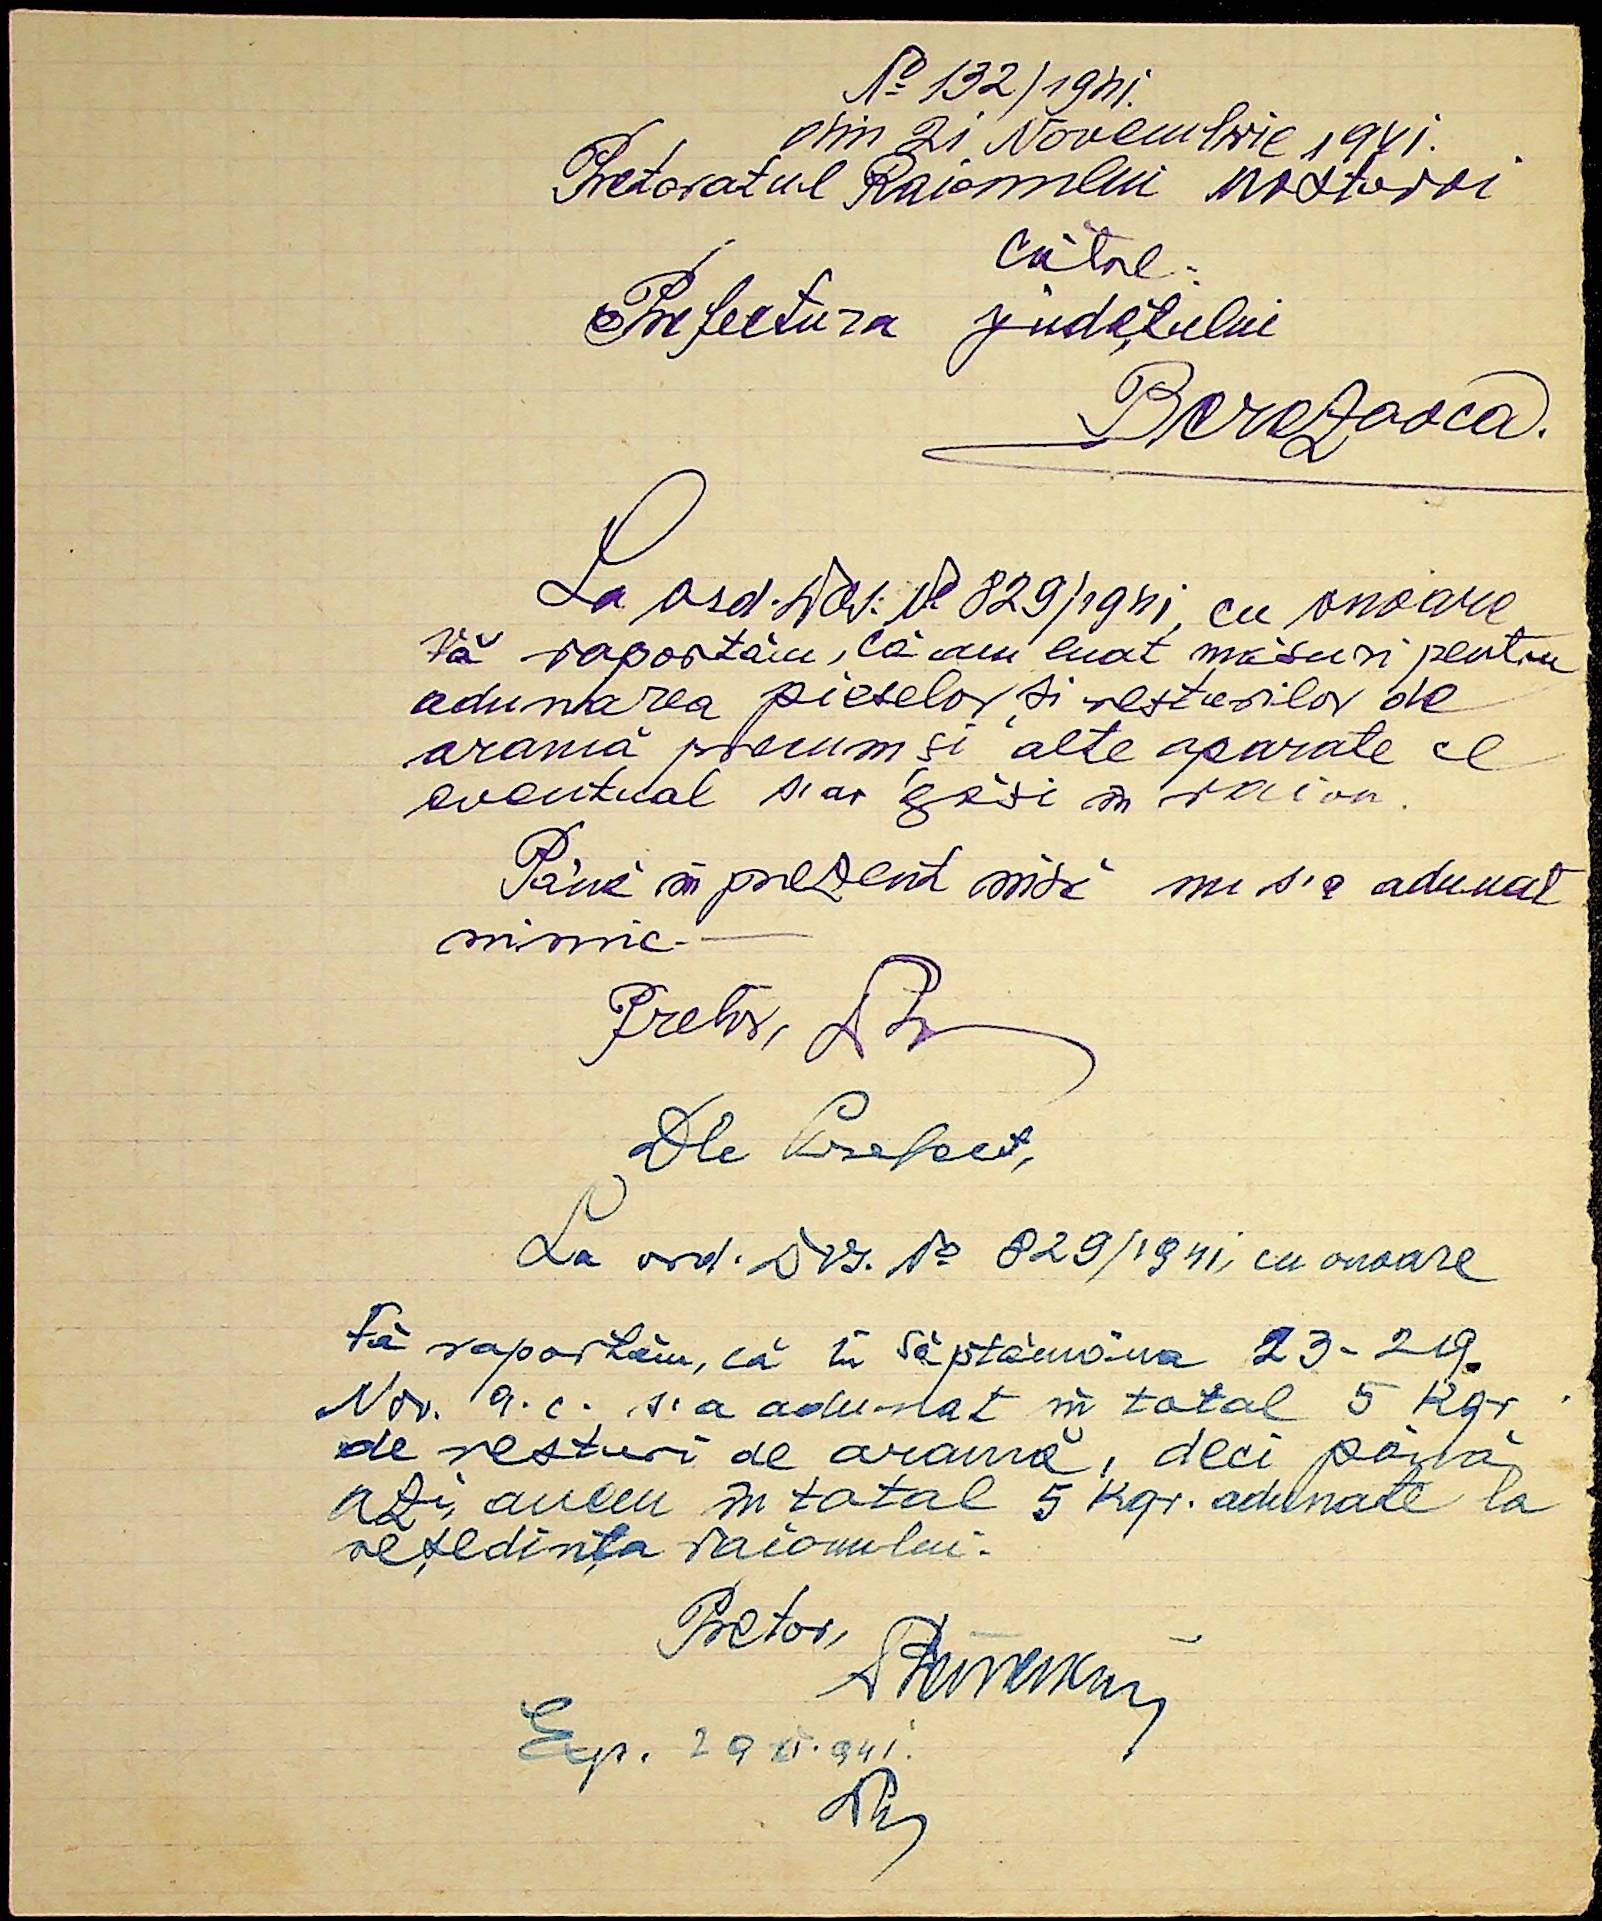 No 132/1941.
din 21 Novembrie 1941.
Pretoratul Raionului Mostovoi
către
Prefectura județului
Berezovca.
La ord. Dv. No 829/1941, cu onoare
Vă raportăm, că am luat măsuri pentru
adunarea pieselor și resturilor de
aramă precum și alte aparate ce
eventual s'ar găsi în raion.
Până în prezent însă nu s'a adunat
nimic.—
Pretor,
Dle Prefect,
La ord. Dvs. No 829/1941, cu onoare
Vă raportăm, că în săptămâna 23-29.
Nov. a.c. s'a adunat în total 5 kgr
de resturi de aramă, deci până
azi, avem în total 5 kgr. adunate la
reședința raionului.
Pretor,
Exp. 29 XI. 941.